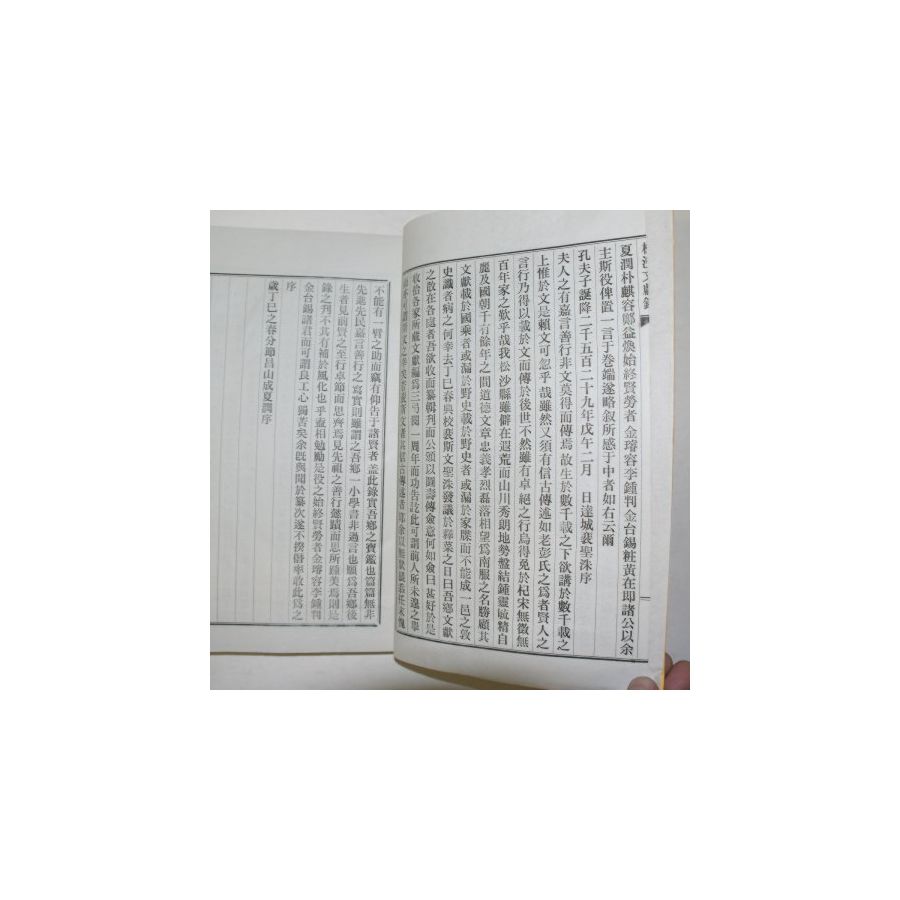 文獻錄
夏潤朴麒容鄭益煥始終賢勞者 金璿容李鍾判金台錫粧黃在即諸公以余
主斯役俾置一言于卷端遂略叙所感于中者如右云爾
孔夫子誕降二千五百二十九年戊午二月 日達城裵聖洙序
夫人之有嘉言善行非文莫得而傳焉故生於數千載之下欲講於數千載之
上惟於文是賴文可忽乎哉雖然又須有信古傳述如老彭氏之爲者賢人之
言行乃得以載於文而傳於後世不然雖有卓絕之行烏得免於杞宋無徵無
百年家之歎乎哉我松沙縣雖僻在遐荒而山川秀朗地勢盤結鍾靈毓精自
麗及國朝千有餘年之間道德文章忠義孝烈磊落相望爲南服之名勝顧其
文獻載於國乘者或漏於野史載於野史者或漏於家牒而不能成一邑之敦
史識者病之何幸去丁巳春與校裵斯文聖洙發議於釋菜之日曰吾鄉文獻
之散在各庭者吾欲收而纂輯刊而公頒以圖壽傳僉意何如僉曰甚好於是
收恰各家所藏文獻編爲三弓閱一周年而功告訖此可謂前人所未遑之擧
古傳述者耶余以無似猥忝任末愧
不能有一臂之助而竊有仰告于諸賢者 盖此錄實吾鄉之寶鑑也篇篇無非
先進先民嘉言善行之寫實則雖謂之吾鄉一小學書非過言也願爲吾鄉後
生者見前賢之至行卓節而思齊焉見先祖之善行懿蹟而思所踵美焉則是
錄之刋不其有補於風化也乎盍相勉勵是役之始終賢勞者金璿容李鍾判
金台錫諸君而可謂良工心獨苦矣余旣與聞於纂次遂不揆僭率敢此爲之
序
歲丁巳之春分節昌山成夏潤序